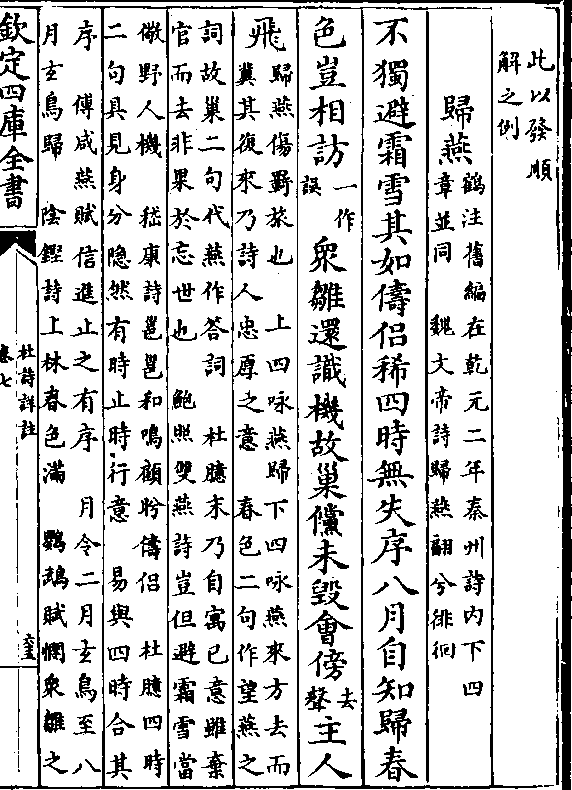 此以發順
解之例
歸燕
鶴注舊編在乾元二年秦州詩内下四
章並同　魏文帝詩歸燕翩兮徘徊
不獨避霜雪其如儔侶稀四時無失序八月自知歸春
色豈相訪
一作
誤
衆雛還識機故巢儻未毀會傍
去
聲
主人
飛
歸燕傷羇旅也　上四咏燕歸下四咏燕來方去而
冀其復來乃詩人忠厚之意　春色二句作望燕之
詞故巢二句代燕作答詞　杜臆末乃自寓已意雖棄
官而去非果於忘世也　鮑照雙燕詩豈但避霜雪當
儆野人機　嵇康詩邕邕和鳴顧盻儔侶　杜臆四時
二句具見身分隐然有時止時行意　易與四時合其
序　傅咸燕賦信進止之有序　月令二月玄鳥至八
月玄鳥歸　陰鏗詩上林春色滿　鸚鵡賦憫衆雛之
欽定四庫全書
杜詩詳註
卷七